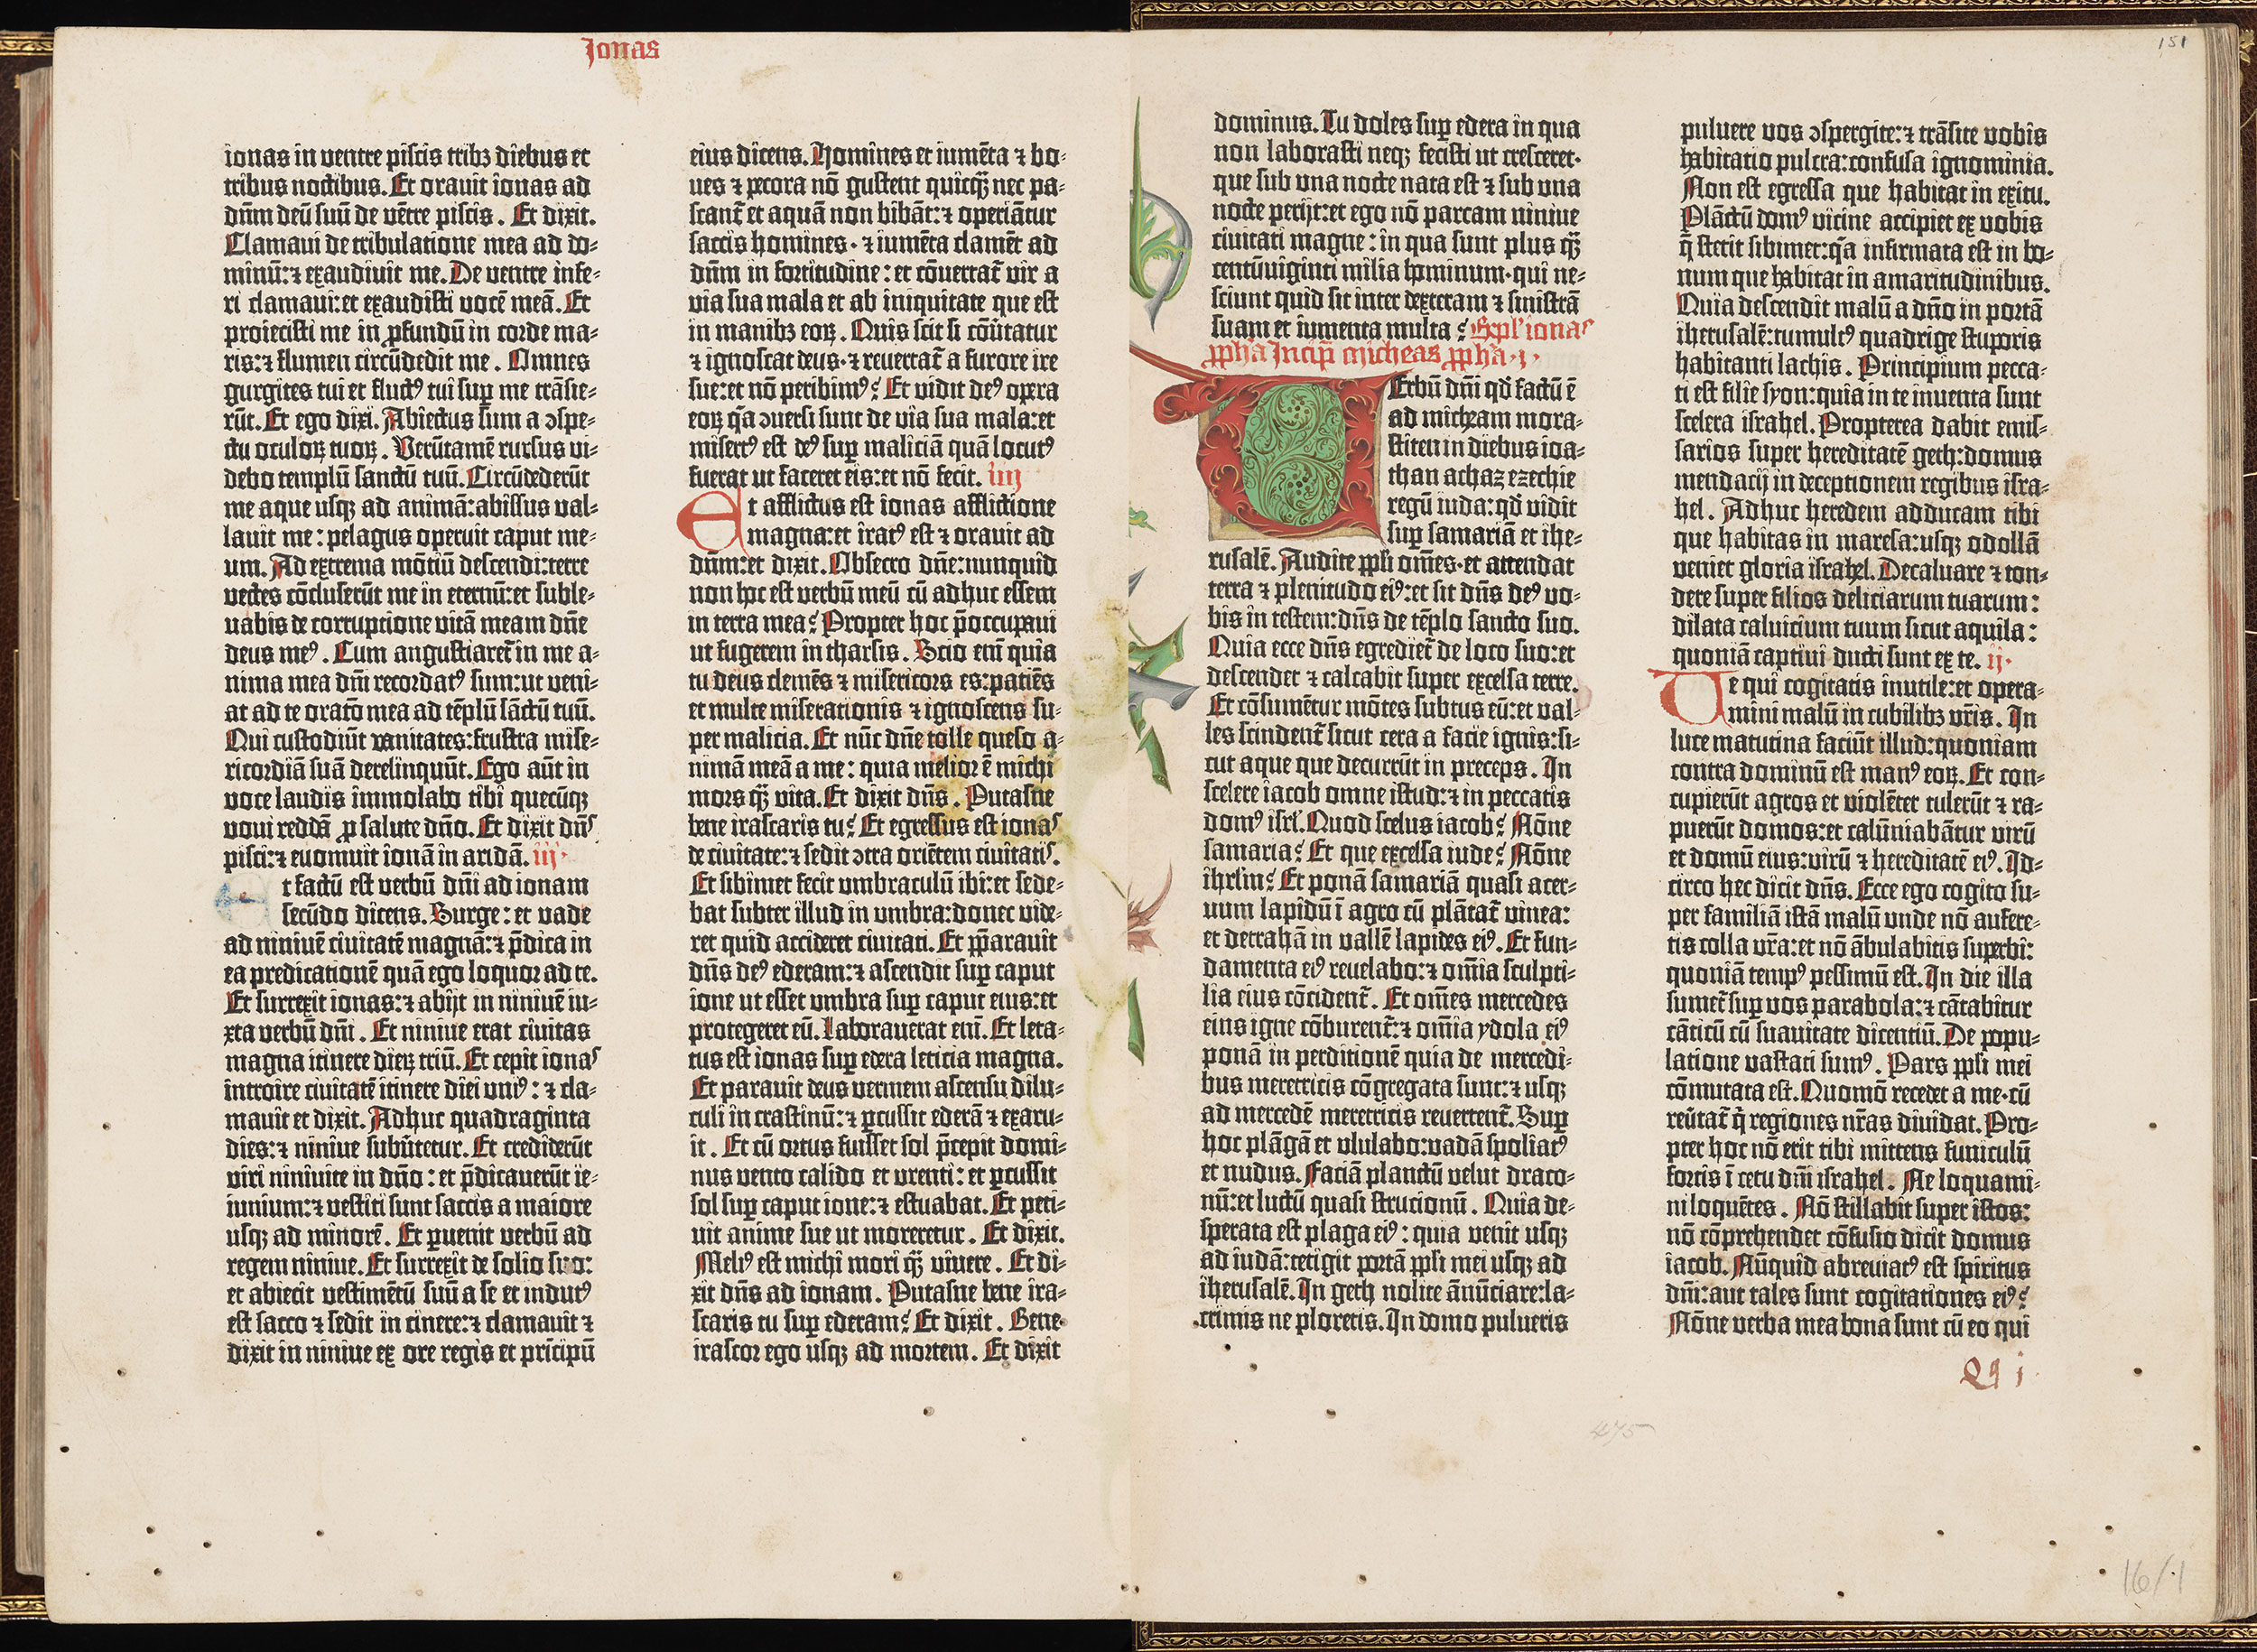 Jonas
ionas in ventre piscis tribꝫ diebus et
tribus noctibus. Et oravit ionas ad
dn̄m deū suū de vētre piscis. Et dixit.
Clamaui de tribulatione mea ad do-
minū:⁊ exaudivit me. De ventre infe-
ri clamaui:et exaudisti vocē meā. Et
proiecisti me in ꝓfundū in corde ma-
ris:⁊ flumen circūdedit me. Omnes
gurgites tui et fluctꝰ tui suꝑ me trāsie-
rūt. Et ego dixi. Abiectus sum a ↄspe-
ctu oculoꝝ tuoꝝ. Verūtamē rursus vi-
debo templū sanctū tuū. Circūdederūt
me aque usqꝫ ad animā:abissus val-
lauit me: pelagus operuit caput me-
um. Ad extrema mōtiū descendi:terre
vectes cōcluserūt me in eternū:et suble-
uabis de corruptione vitā meam dn̄e
deus meꝰ. Cum angustiaret̄ in me a-
nima mea dn̄i recordatꝰ sum:ut veni-
at ad te orat̄o mea ad tēplū sāctū tuū.
Qui custodiūt vanitates:frustra mise-
ricordiā suā derelinquūt. Ego aūt in
voce laudis immolabo tibi quecūqꝫ
voui reddā ꝓ salute dn̄o. Et dixit dn̄s
pisci:⁊ euomuit ionā in aridā. iij.
Et factū est verbū dn̄i ad ionam
secūdo dicens. Surge: et vade
ad niniuē ciuitatē magnā:⁊ p̄dica in
ea predicationē quā ego loquor ad te.
Et surrexit ionas:⁊ abijt in niniuē iu-
xta verbū dn̄i. Et niniue erat ciuitas
magna itinere dieꝝ triū. Et cepit ionas
introire ciuitatē itinere diei uniꝰ: ⁊ cla-
mauit et dixit. Adhuc quadraginta
dies:⁊ niniue subūtetur. Et crediderūt
viri niniuite in dn̄o: et p̄dicauerūt ie-
iunium:⁊ vestiti sunt saccis a maiore
usqꝫ ad minorē. Et ꝑuenit verbū ad
regem niniue. Et surrexit de solio suo:
et abiecit vestimētū suū a se et indutꝰ
est sacco ⁊ sedit in cinere:⁊ clamauit ⁊
dixit in niniue ex ore regis et pricipū
eius dicens. Homines et iumēta ⁊ bo-
ues ⁊ pecora nō gustent quicqꝫ̄ nec pa-
scant̄ et aquā non bibāt:⁊ operiātur
saccis homines. ⁊ iumēta clamēt ad
dn̄m in fortitudine: et cōuertat̄ vir a
via sua mala et ab iniquitate que est
in manibꝫ eoꝝ. Quis scit si cōūtatur
⁊ ignoscat deus. ⁊ reuertat̄ a furore ire
sue:et nō peribimꝰ? Et vidit deꝰ opera
eoꝝ q̄a ↄuersi sunt de via sua mala:et
misertꝰ est deꝰ suꝑ maliciā quā locutꝰ
fuerat ut faceret eis:et nō fecit. iiij
Et afflictus est ionas afflictione
magna:et iratꝰ est ⁊ orauit ad
dn̄m:et dixit. Obsecro dn̄e:nunquid
non hoc est verbū meū cū adhuc essem
in terra mea? Propter hoc p̄occupaui
ut fugerem in tharsis. Scio em̄ quia
tu deus clemēs ⁊ misericors es:patiēs
et multe miserationis ⁊ ignoscens su-
per malicia. Et nūc dn̄e tolle queso a-
nimā meā a me: quia melior ē michi
mors qꝫ̄ vita. Et dixit dn̄s. Putasne
bene irascaris tu? Et egressus est ionas
de ciuitate:⁊ sedit ↄtra oriētem ciuitatis.
Et sibimet fecit umbraculū ibi:et sede-
bat subter illud in umbra:donec vide-
ret quid accideret ciuitati. Et p̄parauit
dn̄s deꝰ ederam:⁊ ascendit suꝑ caput
ione ut esset umbra suꝑ caput eius:et
protegeret eū. Laborauerat em̄. Et leta-
tus est ionas suꝑ edera leticia magna.
Et parauit deus vermem ascensu dilu-
culi in crastinū:⁊ ꝑcussit ederā ⁊ exaru-
it. Et cū ortus fuisset sol p̄cepit domi-
nus vento calido et urenti: et ꝑcussit
sol suꝑ caput ione:⁊ estuabat. Et peti-
uit anime sue ut moreretur. Et dixit.
Meliꝰ est michi mori qꝫ̄ viuere. Et di-
xit dn̄s ad ionam. Putasne bene ira-
scaris tu suꝑ ederam? Et dixit. Bene
irascor ego usqꝫ ad mortem. Et dixit
151
dominus. Tu doles suꝑ edera in qua
non laborasti neqꝫ fecisti ut cresceret.
que sub una nocte nata est ⁊ sub una
nocte perijt:et ego nō parcam niniue
ciuitati magne: in qua sunt plus qꝫ̄
centūviginti milia hominum. qui ne-
sciunt quid sit inter dexteram ⁊ sinistrā
suam et iumenta multa? Expl' ionas
ꝓph̄a Incip̄ micheas ꝓph̄a. i.
VErbū dn̄i qd̄ factū ē
ad micheam mora-
stiten in diebus ioa-
than achaz ezechie
regū iuda:qd̄ vidit
suꝑ samariā et ihe-
rusalē. Audite ppl̄i om̄es. et attendat
terra ⁊ plenitudo eiꝰ:et sit dn̄s deꝰ vo-
bis in testem:dn̄s de tēplo sancto suo.
Quia ecce dn̄s egrediet̄ de loco suo:et
descendet ⁊ calcabit super excelsa terre.
Et cōsumētur mōtes subtus eū:et val-
les scindent̄ sicut cera a facie ignis:si-
cut aque que decurrūt in preceps. In
scelere iacob omne istud:⁊ in peccatis
domꝰ isrl̄. Quod scelus iacob? Nōne
samaria? Et que excelsa iude? Nōne
ihrlm̄? Et ponā samariā quasi acer-
uum lapidū ī agro cū plātat̄ vinea:
et detrahā in vallē lapides eiꝰ. Et fun-
damenta eiꝰ reuelabo:⁊ om̄ia sculpti-
lia eius cōcident̄. Et om̄es mercedes
eius igne cōburent̄:⁊ om̄ia ydola eiꝰ
ponā in perditionē quia de mercedi-
bus meretricis cōgregata sunt:⁊ usqꝫ
ad mercedē meretricis reuertent̄. Suꝑ
hoc plāgā et ululabo:vadā spoliatꝰ
et nudus. Faciā planctū velut draco-
nū:et luctū quasi strucionū. Quia de-
sperata est plaga eiꝰ: quia venit usqꝫ
ad iudā:tetigit portā ppl̄i mei usqꝫ ad
iherusalē. In geth nolite ānūciare:la-
crimis ne ploretis. In domo pulueris
puluere vos ↄspergite:⁊ trāsite vobis
habitatio pulcra:confusa ignominia.
Non est egressa que habitat in exitu.
Plāctū domꝰ vicine accipiet ex vobis
q̄ stetit sibimet:q̄a infirmata est in bo-
num que habitat in amaritudinibus.
Quia descendit malū a dn̄o in portā
iherusalē:tumultꝰ quadrige stuporis
habitanti lachis. Principium pecca-
ti est filie syon:quia in te inuenta sunt
scelera israhel. Propterea dabit emis-
sarios super hereditatē geth:domus
mendacij in deceptionem regibus isra-
hel. Adhuc heredem adducam tibi
que habitas in maresa:usqꝫ odollā
veniet gloria israhel. Decaluare ⁊ ton-
dere super filios deliciarum tuarum:
dilata caluicium tuum sicut aquila:
quoniā captiui ducti sunt ex te. ij.
Ve qui cogitatis inutile:et opera-
mini malū in cubilibꝫ vr̄is. In
luce matutina faciūt illud:quoniam
contra dominū est manꝰ eoꝝ. Et con-
cupierūt agros et violēter tulerūt ⁊ ra-
puerūt domos:et calūniabātur virū
et domū eius:virū ⁊ hereditatē eiꝰ. Id-
circo hec dicit dn̄s. Ecce ego cogito su-
per familiā istā malū unde nō aufere-
tis colla vr̄a:et nō ābulabitis superbi:
quoniā tempꝰ pessimū est. In die illa
sumet̄ suꝑ vos parabola:⁊ cātabitur
cāticū cū suauitate dicentiū. De popu-
latione vastati sumꝰ. Pars ppl̄i mei
cōmutata est. Quomō recedet a me. cū
reūtat̄ q̄ regiones nr̄as diuidat. Pro-
pter hoc nō erit tibi mittens funiculū
sortis ī cetu dn̄i israhel. Ne loquami-
ni loquētes. Nō stillabit super istos:
nō cōprehendet cōfusio dicit domus
iacob. Nūquid abreuiatꝰ est spiritus
dn̄i:aut tales sunt cogitationes eiꝰ?
Nōne verba mea bona sunt cū eo qui
475
16/1